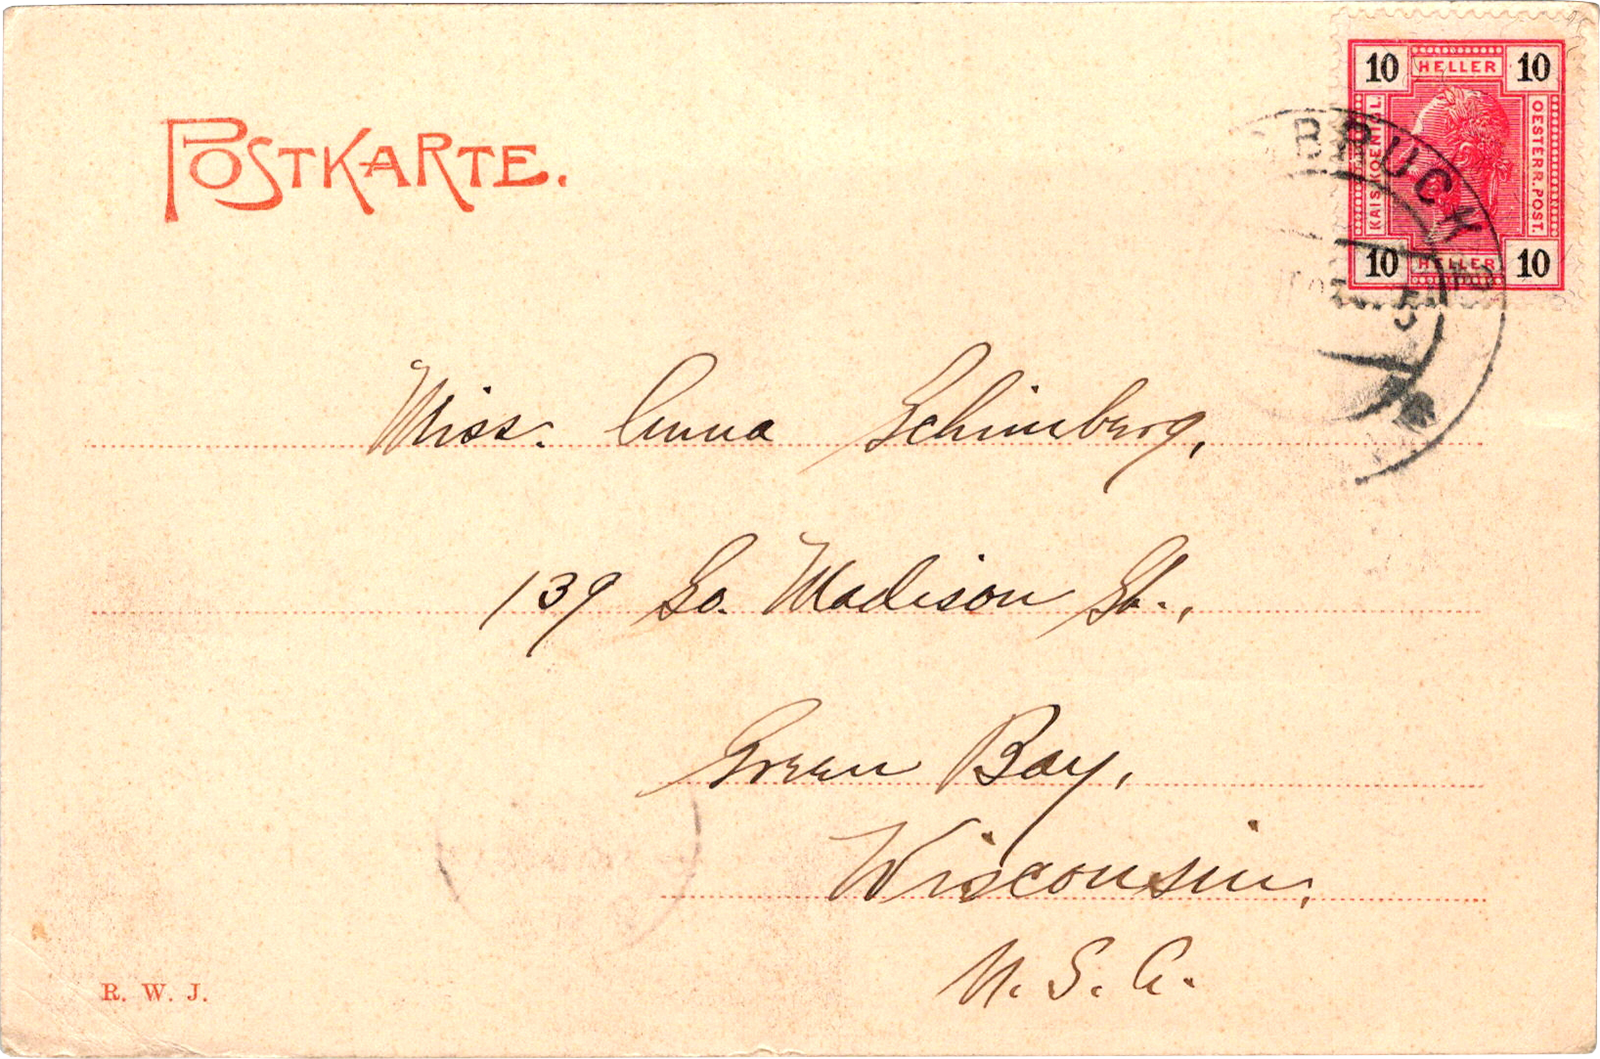 POSTKARTE.
10 HELLER 10
KAIS. KOENIGL.
OESTERR. POST.
10 HELLER 10
BRUCK
5
Miss. Anna Schimberg,
139 So. Madison St.,
Green Bay,
Wisconsin,
U. S. A.
R. W. J.